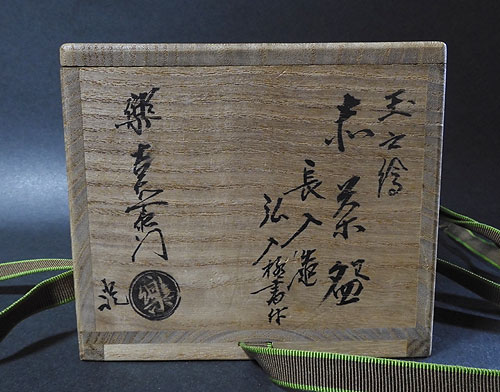 玉之繪
赤茶碗
長入造
弘入極書付
樂吉左衛門
證
樂